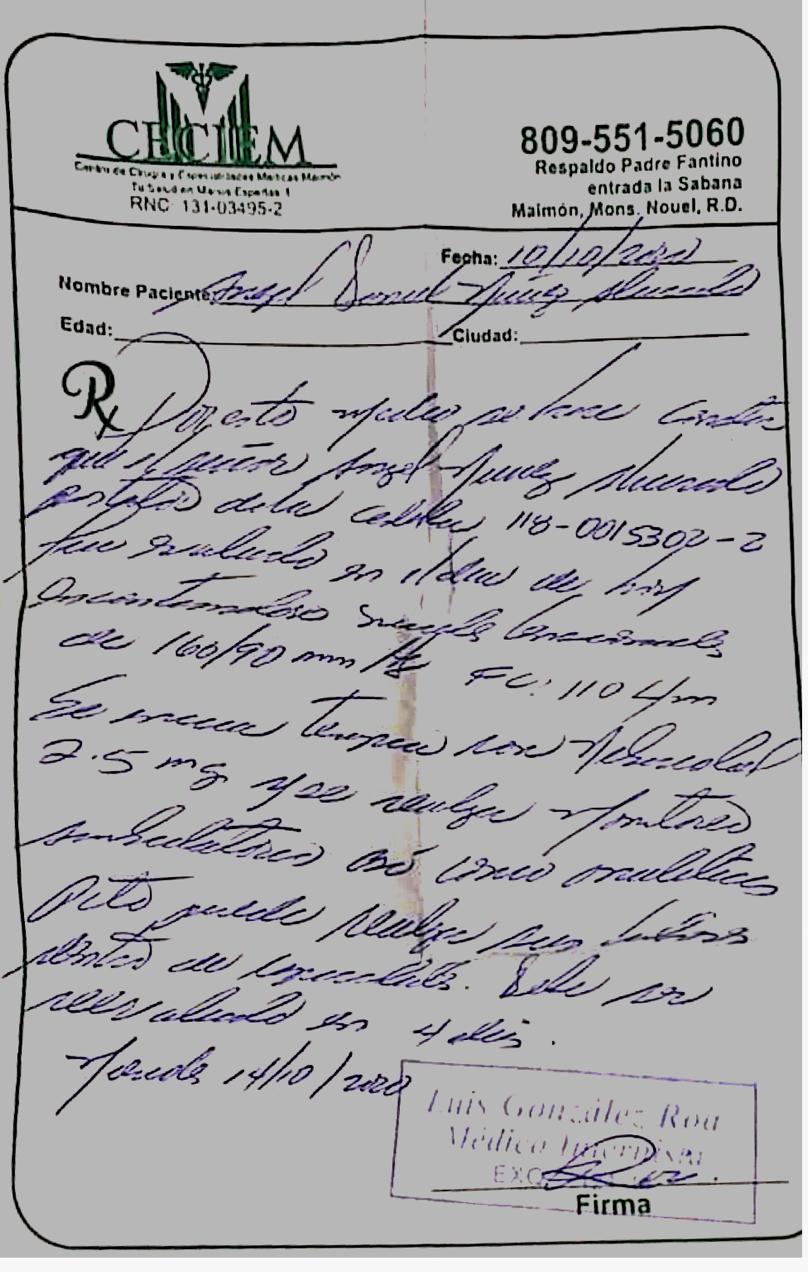 CECIEM
Centro de Cirugía y Especialidades Médicas Maimón
Tu Salud en Manos Expertas
RNC: 131-03495-2
809-551-5060
Respaldo Padre Fantino
entrada la Sabana
Maimón, Mons. Nouel, R.D.
Fecha: 10/10/2020
Nombre Paciente: Angel Núñez
Edad:
Ciudad:
Rx
Por este medio se hace constar
que el señor Angel Nunez
portador de la cedula 118-0015302-2
fue evaluado en el dia de hoy
encontrandose niveles tensionales
de 160/90 mm Hg FC: 110 L/m
Se inicia terapia con Nebivolol
2.5 mg y se realiza Monitoreo
ambulatorio así como analiticas
puede realizar sus labores
dentro de. Debe ser
reevaluado en 4 dias.
14/10/2020
Luis González Roa
Médico Internista
EXQ
Firma